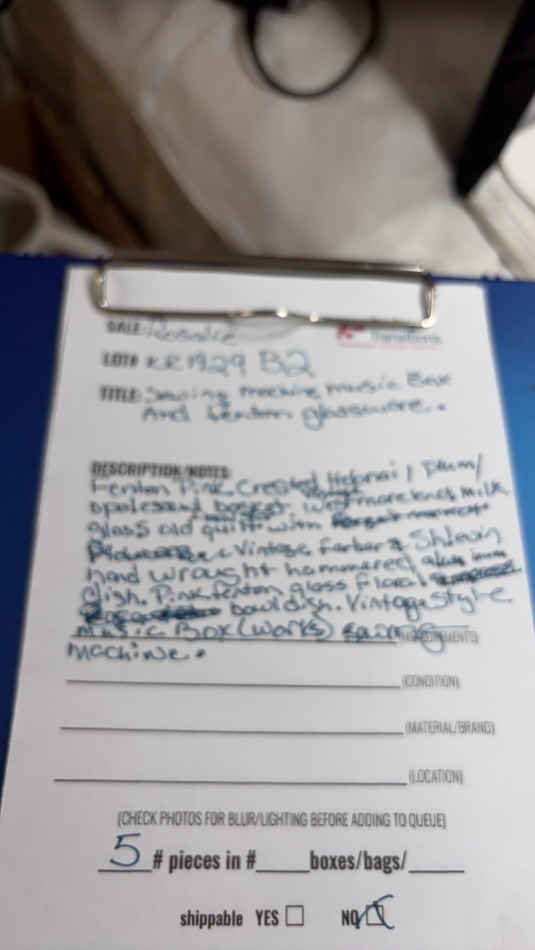 SALE: Rosalie
LOT# KR1929 B2
TITLE: Sewing machine music Box
And Fenton glassware..
DESCRIPTION/NOTES
Fenton Pink Crested Hobnail, Plum/
opalescent basket. Westmoreland milk
glass old quilt with
Vintage Farber & Shlevin
hand wrought hammered alum inum
dish. Pink fenton glass floral
bowl dish. Vintage style
Music Box (works) sewing
machine.
(CONDITION)
(MATERIAL/BRAND)
(LOCATION)
(CHECK PHOTOS FOR BLUR/LIGHTING BEFORE ADDING TO QUEUE)
5 # pieces in # boxes/bags/
shippable YES ☐ NO ☐